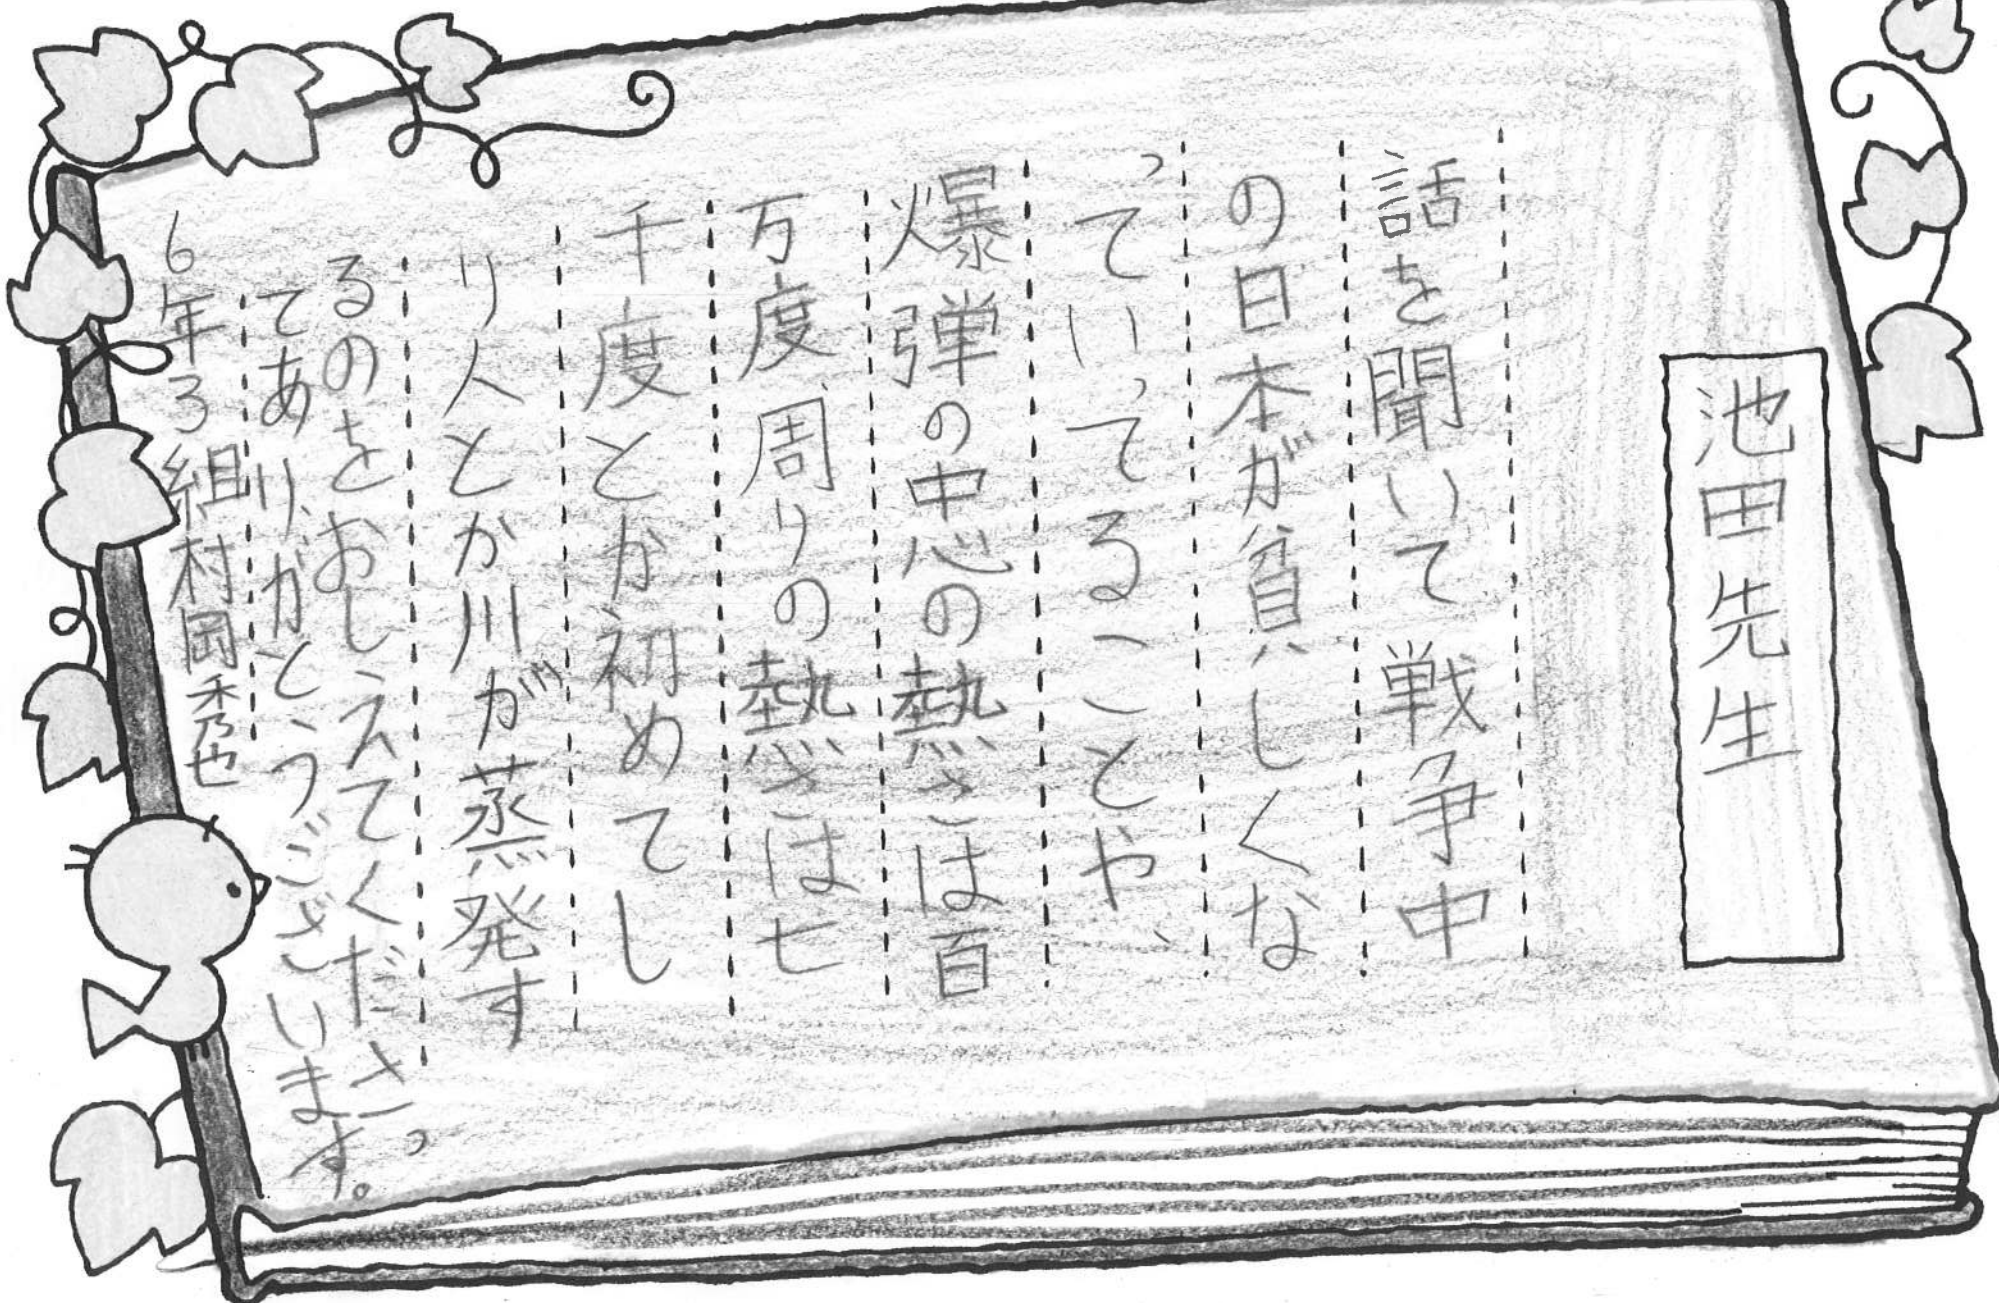 池田先生
話を聞いて戦争中
の日本が貧しくな
っていってることや、
爆弾の中心の熱さは百
万度、周りの熱さは七
千度とか初めてし
り人とか川が蒸発す
るのをおしえてくださっ
てありがとうございます。
6年3組村岡秀也